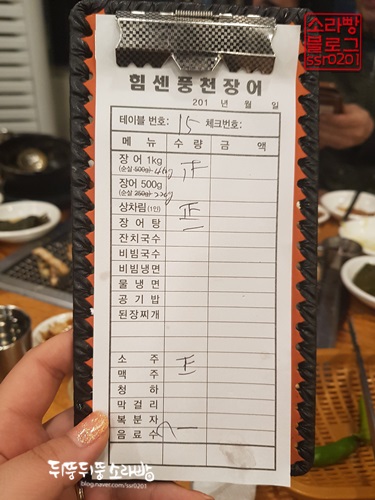 소라빵
블로그
ssr0201
힘센풍천장어
201 년 월 일
테이블 번호: 15 체크번호:
메뉴 수량 금액
장어 1kg 正
(순살 500g)
장어 500g
(순살 250g)
상차림(1인) 正
장어탕
잔치국수
비빔국수
비빔냉면
물냉면
공기밥
된장찌개
소주 正
맥주
청하
막걸리
복분자
음료수
뒤뚱뒤뚱소라빵
blog.naver.com/ssr0201